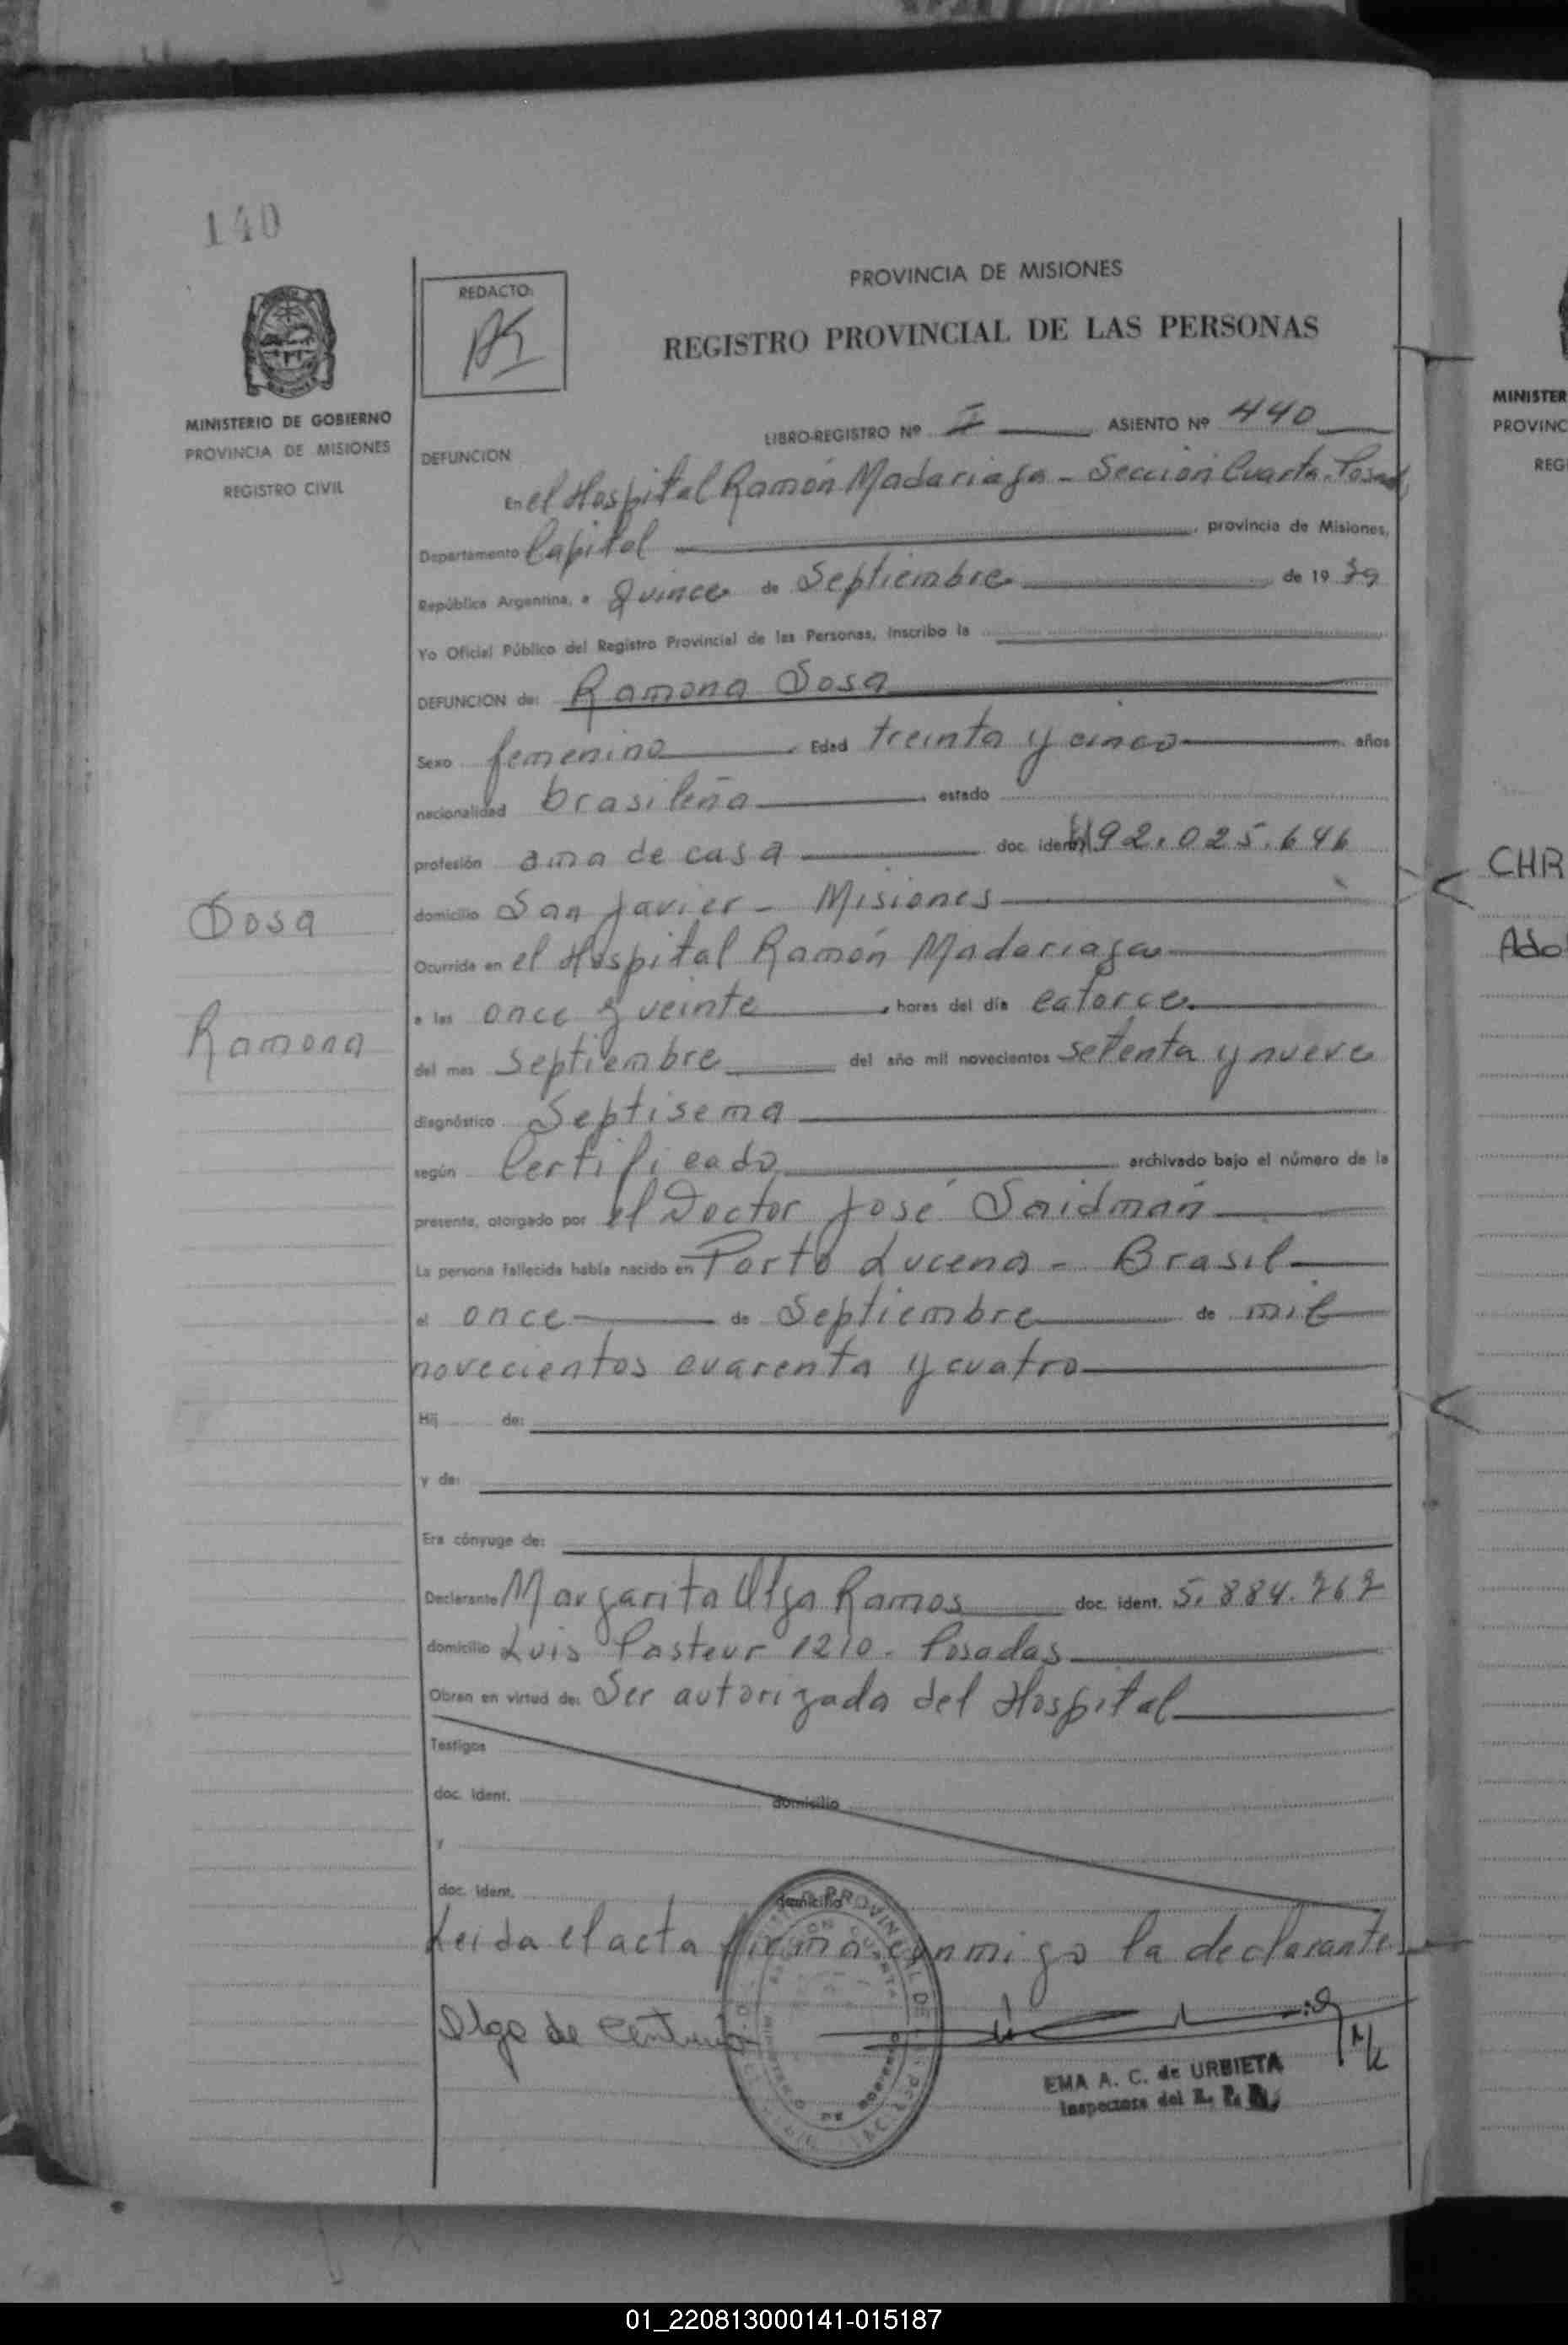 140
PROVINCIA DE MISIONES
REDACTO:
REGISTRO PROVINCIAL DE LAS PERSONAS
MINISTERIO DE GOBIERNO
PROVINCIA DE MISIONES
REGISTRO CIVIL
LIBRO-REGISTRO Nº I ASIENTO Nº 440
DEFUNCION
En el Hospital Ramón Madariaga - Sección Cuarta. Posad
Departamento Capital , provincia de Misiones,
República Argentina, a Quince de Septiembre de 19 79
Yo Oficial Público del Registro Provincial de las Personas, Inscribo la
DEFUNCION de: Ramona Sosa
Sexo femenino Edad treinta y cinco años
nacionalidad brasileña estado
profesión ama de casa doc. ident. 92.025.646
domicilio San Javier - Misiones
Ocurrida en el Hospital Ramón Madariaga
a las once y veinte , horas del día catorce
del mes Septiembre del año mil novecientos setenta y nueve
diagnóstico Septisema
según Certificado archivado bajo el número de la
presente, otorgado por el Doctor José Saidman
La persona fallecida había nacido en Porto Lucena - Brasil
el once de Septiembre de mil
novecientos cuarenta y cuatro
Hij de:
y de:
Era cónyuge de:
Declarante Margarita Olga Ramos doc. ident. 5.884.262
domicilio Luis Pasteur 1210. Posadas
Obran en virtud de: Ser autorizada del Hospital
Testigos
doc. ident. domicilio
y
doc. ident. domicilio
Leida el acta firma conmigo la declarante
Olga de
EMA A. C. de URBIETA
Inspectora del R. P.
Sosa
Ramona
MINISTER
PROVINC
REG
CHR
Ado
01_220813000141-015187